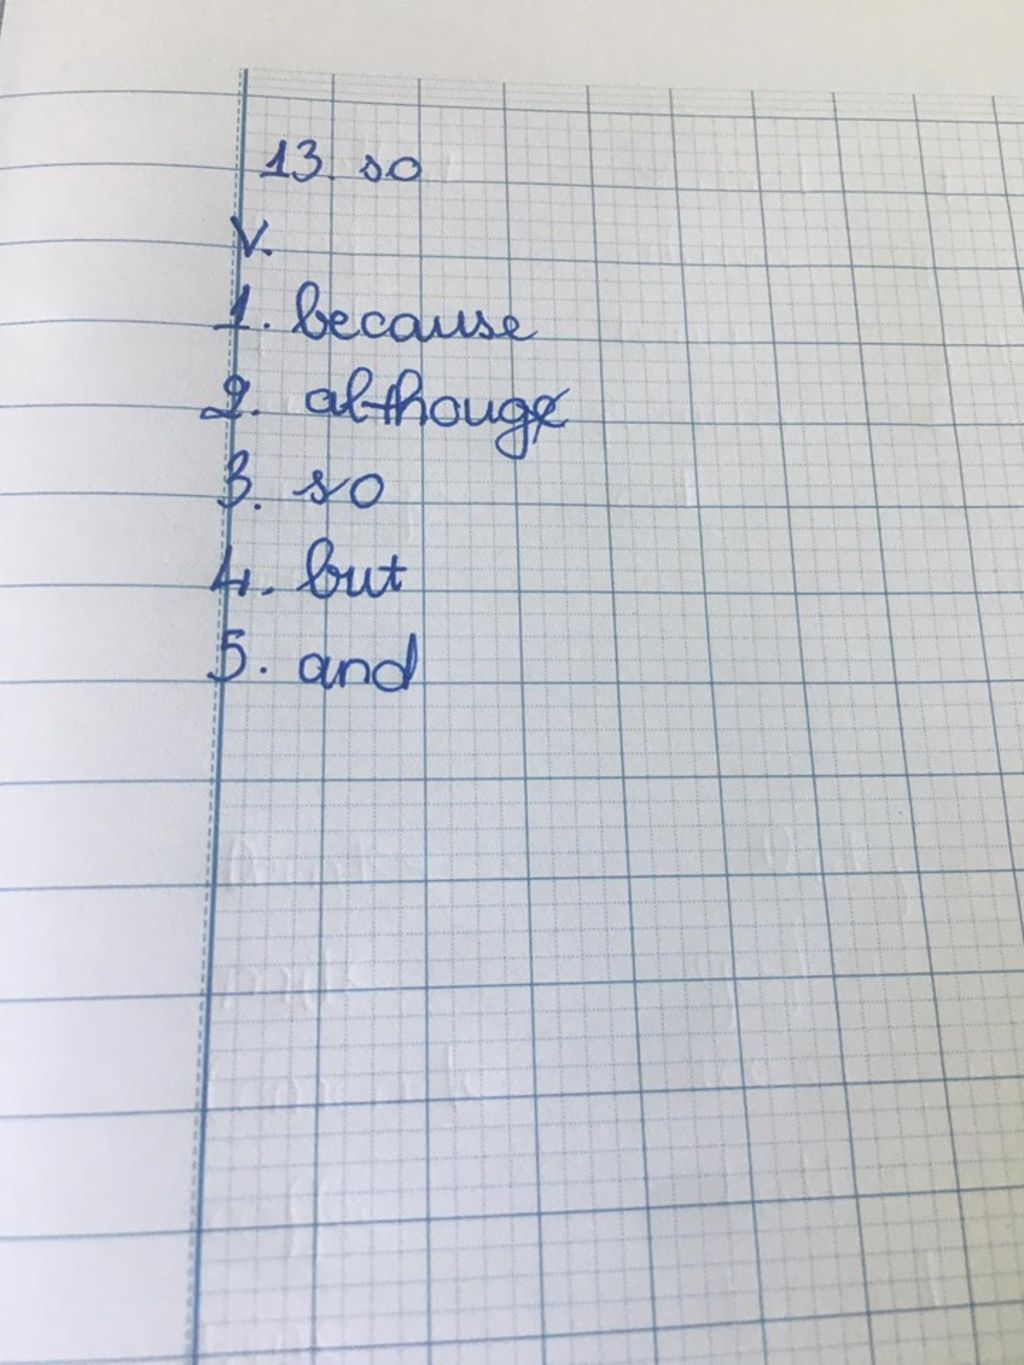 13. so
V.
1. because
2. although
3. so
4. but
5. and